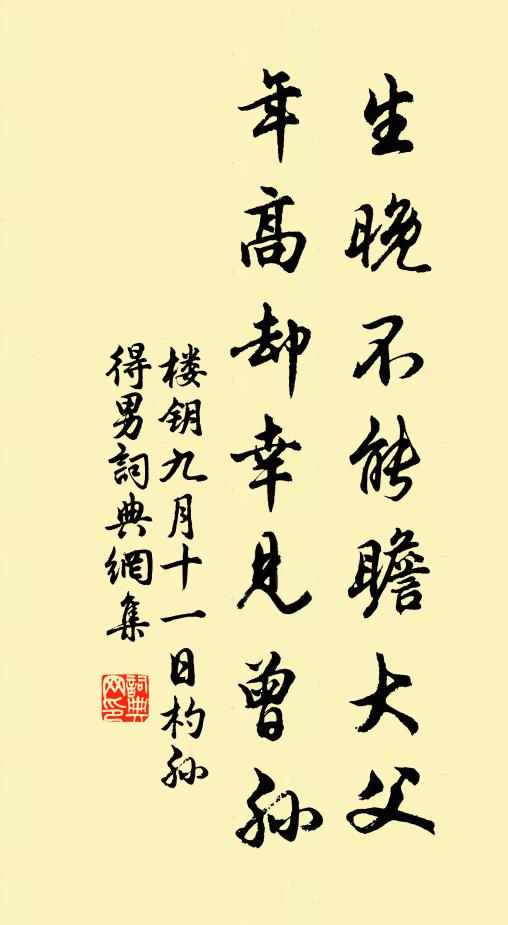 生晚不能瞻大父
年高却幸見曾孙
楼钥九月十一日杓孙
得男詞典網集
詞典
网印